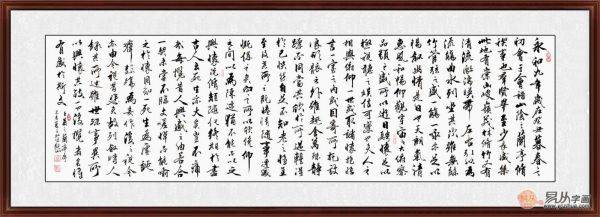 永和九年歲在癸丑暮春之
初會于會稽山陰之蘭亭脩
禊事也羣賢畢至少長咸集
此地有崇山峻領茂林脩竹又有
清流激湍暎帶左右引以為
流觴曲水列坐其次雖無絲
竹管弦之盛一觴一詠亦足以
暢敘幽情是日也天朗氣清
惠風和暢仰觀宇宙之大俯察
品類之盛所以遊目騁懷足以
極視聽之娛信可樂也夫人之
相與俯仰一世或取諸懷抱悟
言一室之內或因寄所託放
浪形骸之外雖趣舍萬殊靜
躁不同當其欣於所遇暫得
於己快然自足不知老之將
至及其所之既倦情隨事遷感
慨係之矣向之所欣俛仰
之間以為陳迹猶不能不以之
興懷況脩短隨化終期於盡
古人云死生亦大矣豈不痛
哉每攬昔人興感之由若合
一契未嘗不臨文嗟悼不能喻
之於懷固知一死生為虛誕
齊彭殤為妄作後之視今
亦由今之視昔悲夫故列敘時人
錄其所述雖世殊事異所
以興懷其致一也後之攬者亦將
有感於斯文
易从字画